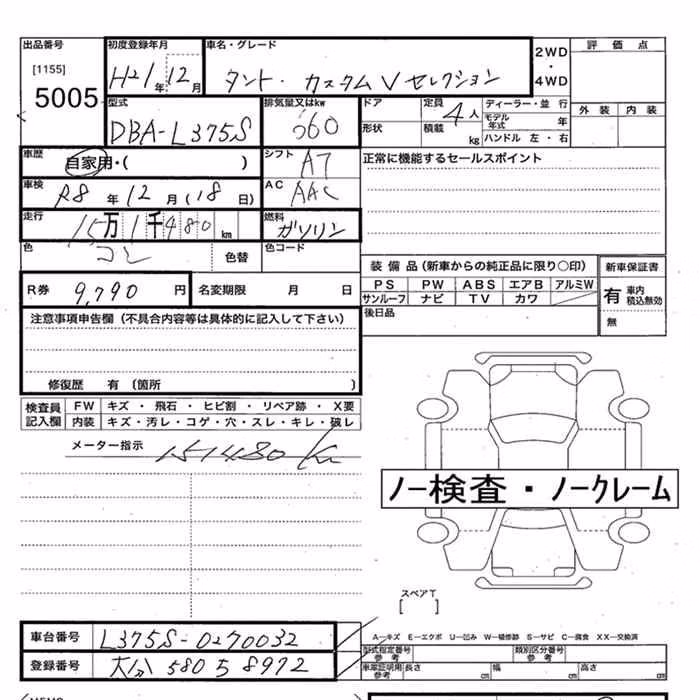 出品番号 初度登録年月 車名・グレード 2WD 評価点
[1155] H21年12月 タント・カスタムVセレクション ・
5005 4WD
型式 排気量又はkw ドア 定員 4人 ディーラー・並行 外装 内装
DBA-L375S 660 形状 積載 kg モデル年式 年
ハンドル 左・右
車歴 自家用・( ) シフト AT 正常に機能するセールスポイント
車検 R8年12月(18日) AC AAC
走行 15万1千480km 燃料 ガソリン
色 コン 色替 色コード
装備品(新車からの純正品に限り○印) 新車保証書
R券 9,790円 名変期限 月 日 PS PW ABS エアB アルミW 有 車内積込無効
サンルーフ ナビ TV カワ
注意事項申告欄(不具合内容等は具体的に記入して下さい) 後日品 無
修復歴 有 〔箇所 〕
検査員 FW キズ・飛石・ヒビ割・リペア跡・X要
記入欄 内装 キズ・汚レ・コゲ・穴・スレ・キレ・破レ
メーター指示 151480 Km
ノー検査・ノークレーム
スペアT
[ ]
車台番号 L375S-0270032 A―キズ E―エクボ U―凹み W―補修跡 S―サビ C―腐食 XX―交換済
型式指定番号 参考 類別区分番号 参考
登録番号 大分 580 ち 8972 車庫証明用 参考 長さ cm 幅 cm 高さ cm
MEMO